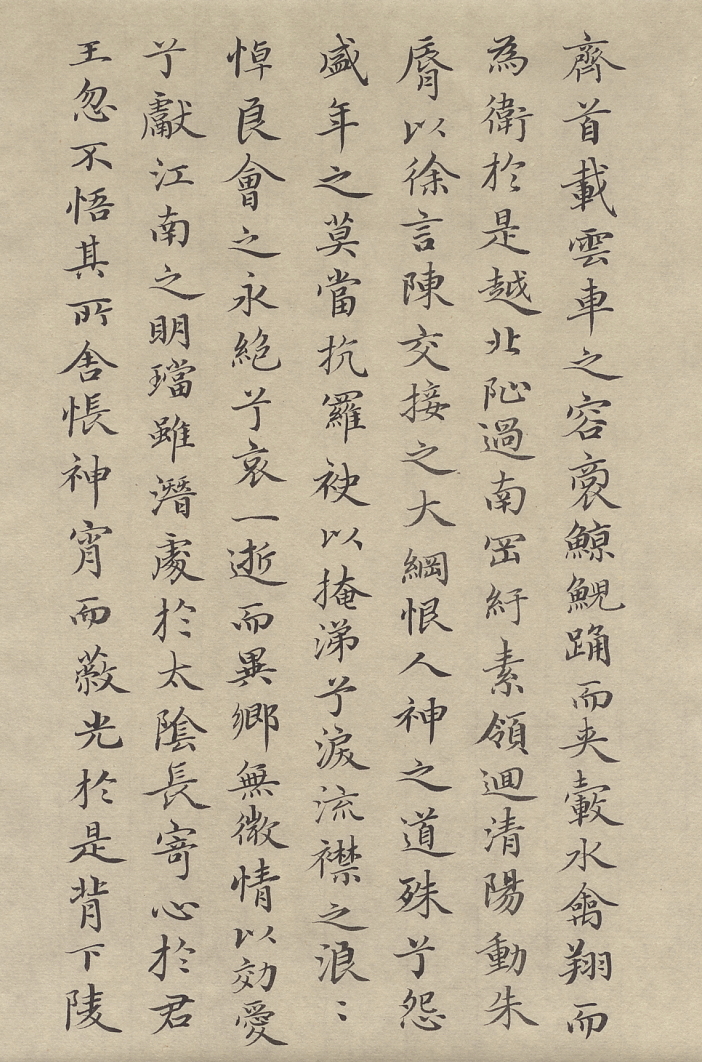 齊首載雲車之容裔鯨鯢踊而夾轂水禽翔而
為衛於是越北沚過南罡紆素領迴清陽動朱
脣以徐言陳交接之大綱恨人神之道殊兮怨
盛年之莫當抗羅袂以掩涕兮淚流襟之浪〻
悼良會之永絕兮哀一逝而異鄉無微情以効愛
兮獻江南之明璫雖潛處於太陰長寄心於君
王忽不悟其所舍悵神宵而蔽光於是背下陵